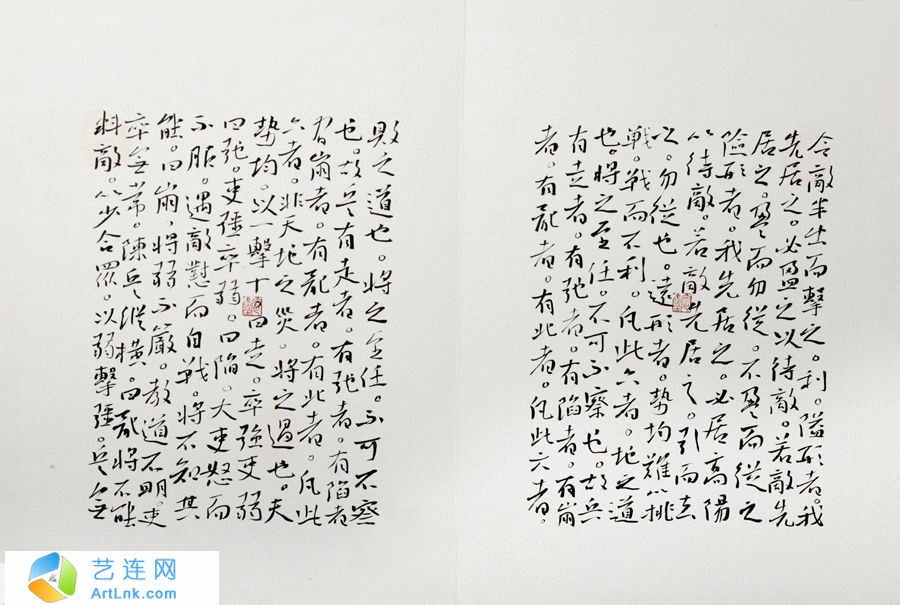 令敵半出而擊之。利。隘形者。我
先居之。必盈之以待敵。若敵先
居之。盈而勿從。不盈而從之
險形者。我先居之。必居高陽
以待敵。若敵先居之。引而去
之。勿從也。遠形者。勢均難以挑
戰。戰而不利。凡此六者。地之道
也。將之至任。不可不察也。故兵
有走者。有弛者。有陷者。有崩
者。有亂者。有北者。凡此六者。
敗之道也。將之至任。不可不察
也。故兵有走者。有弛者。有陷者
有崩者。有亂者。有北者。凡此
六者。非天地之災。將之過也。夫
勢均。以一擊十。曰走。卒強吏弱
曰弛。吏彊卒弱。曰陷。大吏怒而
不服。遇敵懟而自戰。將不知其
能。曰崩。將弱不嚴。教道不明。吏
卒無常。陳兵縱橫。曰亂。將不能
料敵。以少合眾。以弱擊彊。兵無
艺连网
ArtLnk.com